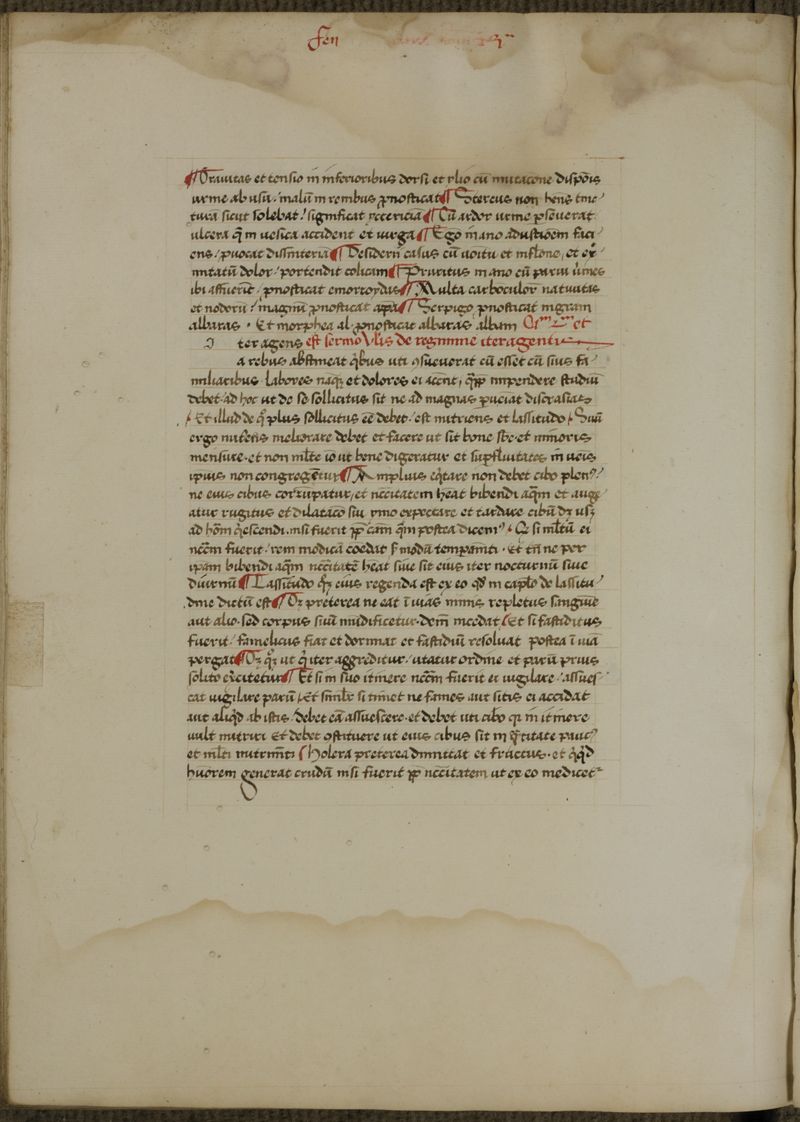 Fen
¶ Grauitas et tensio in inferioribus dorsi et ylio cũ mutacõne dispõis
urine ab usu. malũ in renibus ꝓnosticat ¶ Stercus non bene tinc
turã sicut solebat significat yctericiã ¶ Cũ ardor urine pseuerat
ulcera q̃ in uesica accident et uirga ¶ Ego in ano adustiõem faci
ens puocat dissinteriã ¶ Desiderii casus cũ uoitu et inflõne, et ex
nitatũ dolor portendit colicam ¶ Pruritus in ano cũ parui uꝰmes
ibi affuerit pnosticat emoroydas ¶ Multa carboculor natiuitas
et nodorũ magnũ ꝓnosticat apã ¶ Serpigo pnosticat nigram
albaras · Et morphea al ꝓnosticat albaras albam
I ter agens est sermo Vlis de regimine iteragentis
a rebus abstineat q̃bus uti ꝯsueuerat cũ esset cũ suis fa
miliaribus labores naq; et dolores ei accñt, impendere studiũ
debet ad hoc ut de se sollicitus sit ne ad magnas puciat discrasias
Et illud de q̃ plus sollicitus eẽ debet est nutriens et lassitudo Suũ
ergo nutriens meliorare debet et facere ut sit bone sbe et minoris
mensure et non mlte io ut bene digeratur et supfluitates in ueis
ipius non congregẽtur ¶ Amplius eq̃tare non debet cibo plenꝰ
ne eius cibus corrũpatur, et nccitatem heat bibendi aq̃m et auge
atur rugitus et dilatacõ siu ymo expectare et tardare cibũ dz usq;
ad hõm q̃escendi nisi fuerit ꝓp cam q̃m postea dicemꝰ · Q̃ si mltũ ei
nccm fuerit rem modicã coedat modũ tempamti · Et tñ ne per
ipam bibendi aq̃m nccitatẽ heat siue sit eius iter nocturnũ siue
diurnũ ¶ Lassitudo q; eius regenda est ex eo q̃d in caplo de lassitu
dine dictũ est ¶ Dz preterea ne eat ĩ uias nimis repletus sanguine
aut alio sed corpus suũ mũdificetur dein incedat Et si fastiditus
fuerit famelicus fiat et dormiat et fastidiũ resoluat postea ĩ uiã
pergat ¶ Dz q; ut q̃ iter aggreditur utatur ordine et parũ prius
solito exercitetur ¶ Et si in suo itinere nccm fuerit ei uigilare assues
cat uigilare parũ Et similr si timet ne fames aut sitis ei accidat
aut aliq̃d ab istis debet eã assuescere et debet uti cibo q̃ in itinere
uult nutriri Et debet ꝯstituere ut eius cibus sit in q̃titate paucꝰ
et mlti nutrimti ( Holera preterea dimittat et fructus et q̃cq̃d
humorem generat crudũ nisi fuerit ꝓp nccitatem ut ex eo medicetꝰ